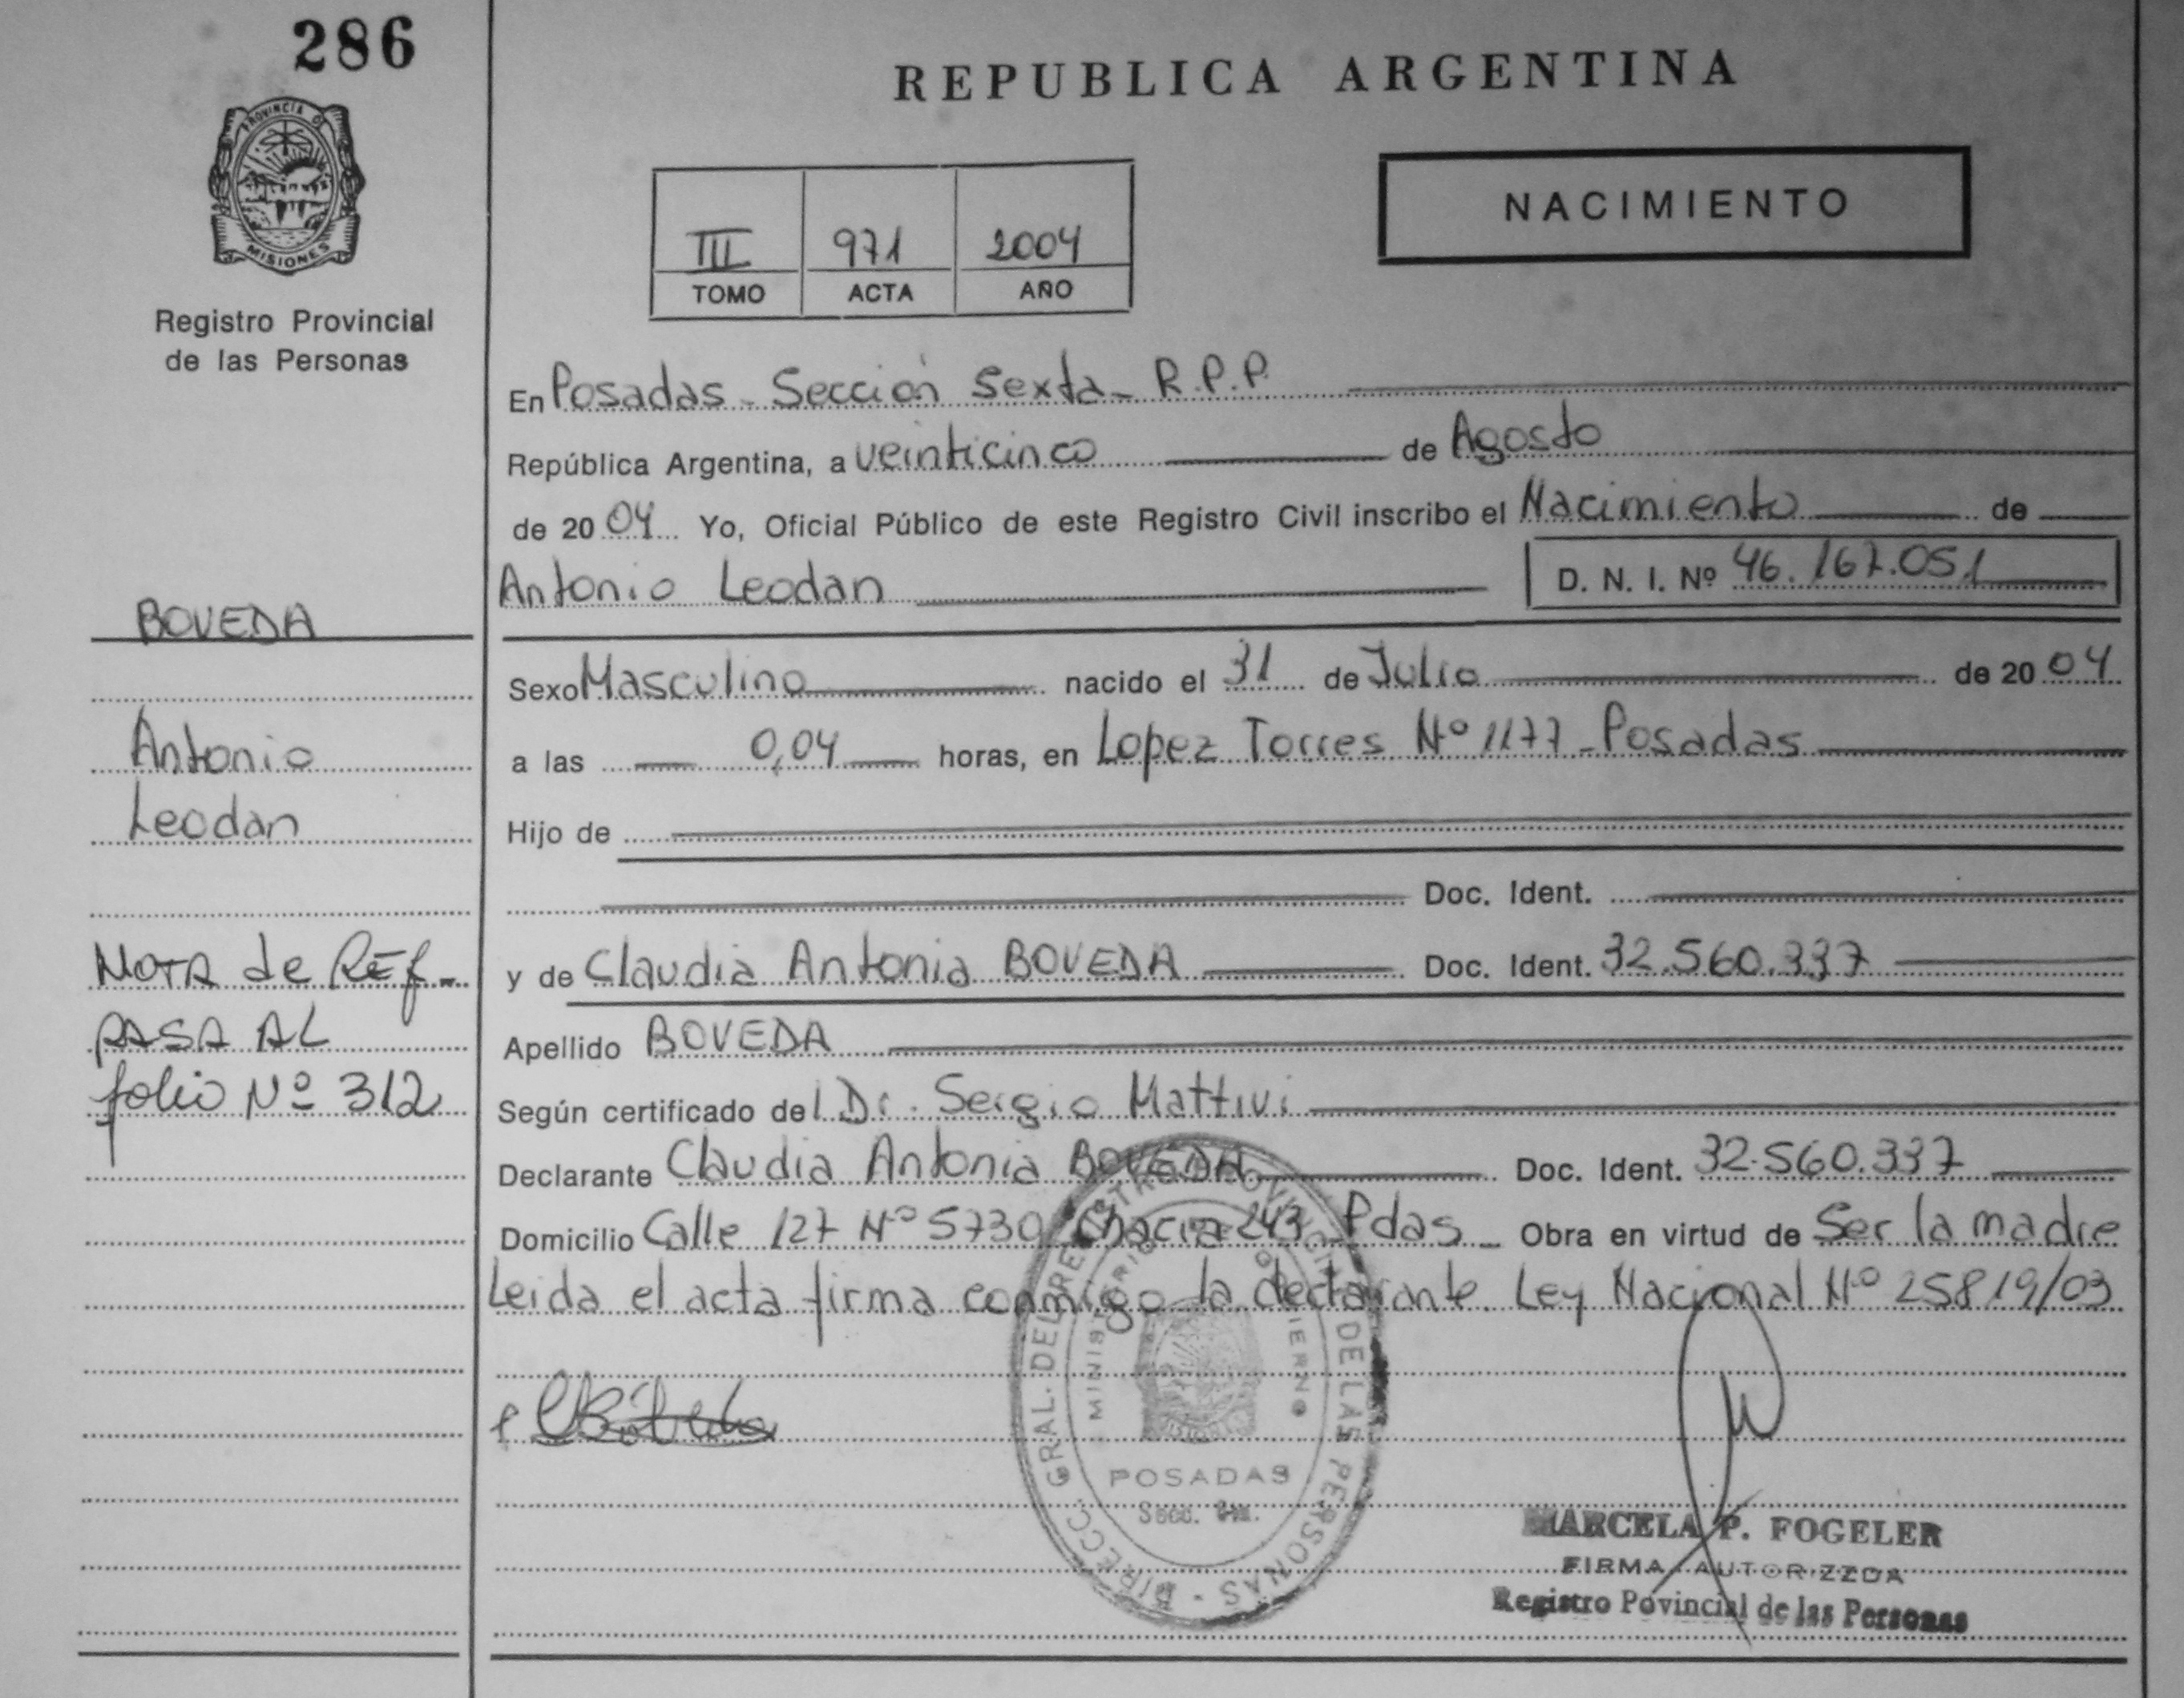 286
PROVINCIA D
MISIONES
Registro Provincial
de las Personas
BOVEDA
Antonio
Leodan
NOTA de REF-
PASA AL
folio Nº 312
REPUBLICA ARGENTINA
NACIMIENTO
III 971 2004
TOMO ACTA AÑO
En Posadas - Sección Sexta - R.P.P.
República Argentina, a veinticinco de Agosto
de 2004 Yo, Oficial Público de este Registro Civil inscribo el Nacimiento de
Antonio Leodan D. N. I. Nº 46.167.051
Sexo Masculino nacido el 31 de Julio de 2004
a las 0,04 horas, en Lopez Torres Nº 1177 - Posadas
Hijo de
Doc. Ident.
y de Claudia Antonia BOVEDA Doc. Ident. 32.560.337
Apellido BOVEDA
Según certificado del Dr. Sergio Mattivi
Declarante Claudia Antonia BOVEDA Doc. Ident. 32.560.337
Domicilio Calle 127 Nº 5730 Chacra 243 Pdas - Obra en virtud de Ser la madre
Leida el acta firma conmigo la declarante. Ley Nacional Nº 25819/03
DIRECC. GRAL. DEL REGISTRO PROVINCIAL DE LAS PERSONAS
MINISTERIO DE GOBIERNO
POSADAS
Secc.
MARCELA P. FOGELER
FIRMA AUTORIZZDA
Registro Povincial de las Personas